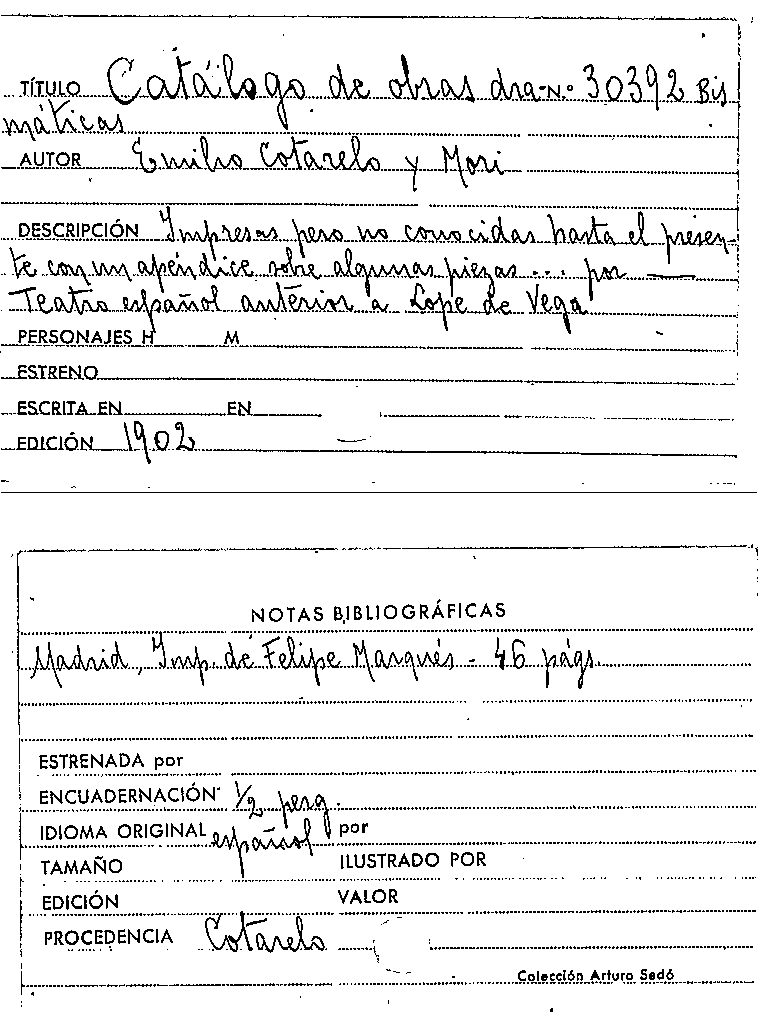 TÍTULO Catálogo de obras dra-N.º 30392 Bis
máticas
AUTOR Emilio Cotarelo y Mori
DESCRIPCIÓN Impresas pero no conocidas hasta el presen-
te con un apéndice sobre algunas piezas ... por —
Teatro español anterior a Lope de Vega
PERSONAJES H M
ESTRENO
ESCRITA EN EN
EDICIÓN 1902
NOTAS BIBLIOGRÁFICAS
Madrid, Imp. de Felipe Marqués - 46 págs.
ESTRENADA por
ENCUADERNACIÓN 1/2 perg.
IDIOMA ORIGINAL español por
TAMAÑO ILUSTRADO POR
EDICIÓN VALOR
PROCEDENCIA Cotarelo
Colección Arturo Sedó